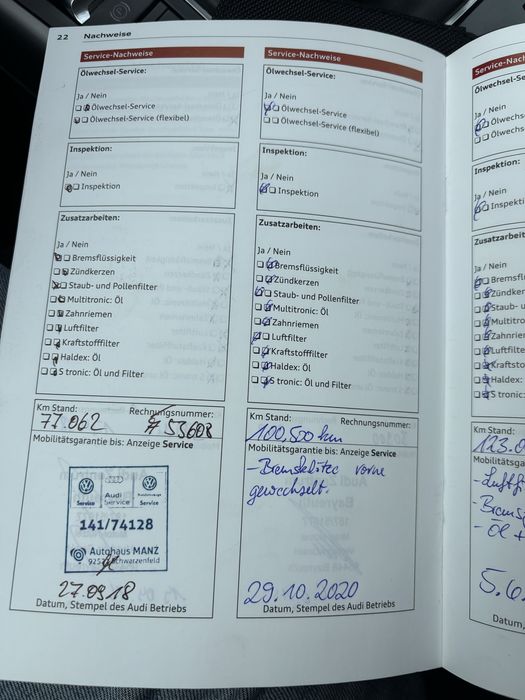 22 Nachweise
Service-Nachweise
Ölwechsel-Service:
Ja / Nein
Ölwechsel-Service
Ölwechsel-Service (flexibel)
Inspektion:
Ja / Nein
Inspektion
Zusatzarbeiten:
Ja / Nein
Bremsflüssigkeit
Zündkerzen
Staub- und Pollenfilter
Multitronic: Öl
Zahnriemen
Luftfilter
Kraftstofffilter
Haldex: Öl
S tronic: Öl und Filter
Km Stand: Rechnungsnummer:
77.062 53608
Mobilitätsgarantie bis: Anzeige Service
Audi
Service Service Service
141/74128
Autohaus MANZ
Schwarzenfeld
27.09.18
Datum, Stempel des Audi Betriebs
Service-Nachweise
Ölwechsel-Service:
Ja / Nein
Ölwechsel-Service
Ölwechsel-Service (flexibel)
Inspektion:
Ja / Nein
Inspektion
Zusatzarbeiten:
Ja / Nein
Bremsflüssigkeit
Zündkerzen
Staub- und Pollenfilter
Multitronic: Öl
Zahnriemen
Luftfilter
Kraftstofffilter
Haldex: Öl
S tronic: Öl und Filter
Km Stand: Rechnungsnummer:
100.500 km
Mobilitätsgarantie bis: Anzeige Service
vorne
gewechselt.
29.10.2020
Datum, Stempel des Audi Betriebs
Service-Nach
Ölwechsel-S
Ja / Nein
Ölwechs
Ölwechs
Inspektion:
Ja / Nein
Inspekt
Zusatzarbeit
Ja / Nein
Bremsfl
Zünder
Staub-u
Multitro
Zahnrie
Luftfilte
Kraftsto
Haldex:
S tronic:
Km Stand:
123.0
Mobilitätsga
- Öl +
5.6.
Datum,